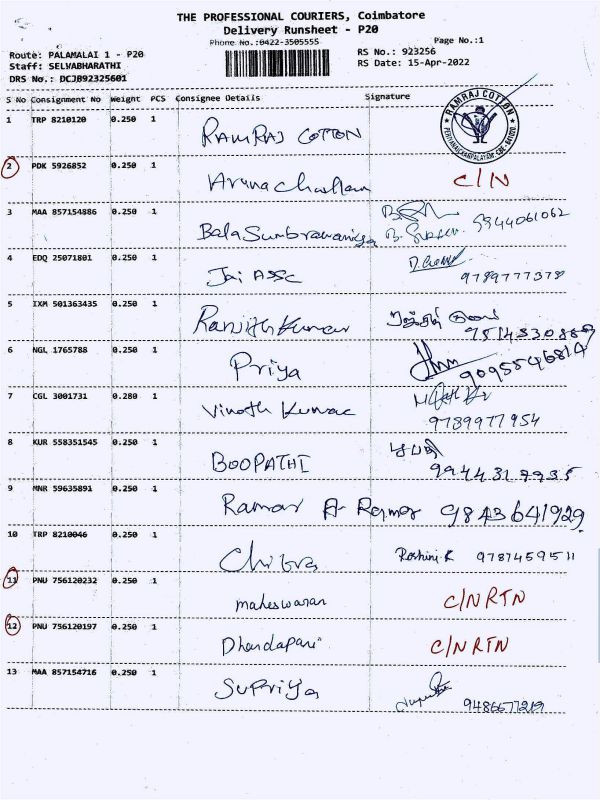 THE PROFESSIONAL COURIERS, Coimbatore
Delivery Runsheet - P20
Phone No.:0422-3505555
Page No.:1
Route: PALAMALAI 1 - P20
RS No.: 923256
Staff: SELVABHARATHI
RS Date: 15-Apr-2022
DRS No.: DCJB92325601
S No Consignment No Weight PCS Consignee Details Signature
1 TRP 8210120 0.250 1 RAMRAJ COTTON
RAMRAJ COTTON
2 PDK 5926852 0.250 1 Arunachallam C/N
3 MAA 857154886 0.250 1 9944061062
4 EDQ 25071801 0.250 1 Jai Assc 9789777378
5 IXM 501363435 0.250 1 Ranjith Kumar
6 NGL 1765788 0.250 1 Priya 9095546814
7 CGL 3001731 0.280 1 Vinoth Kumar 9789977954
8 KUR 558351545 0.250 1 BOOPATHI பூபதி
9944317935
9 MNR 59635891 0.250 1 Raman A. Raman 9843641929
10 TRP 8210046 0.250 1 Chitra Roshini.R 9787459511
11 PNU 756120232 0.250 1 maheswaran C/N RTN
12 PNU 756120197 0.250 1 Dhandapani C/N RTN
13 MAA 857154716 0.250 1 SuPriya 9486677219